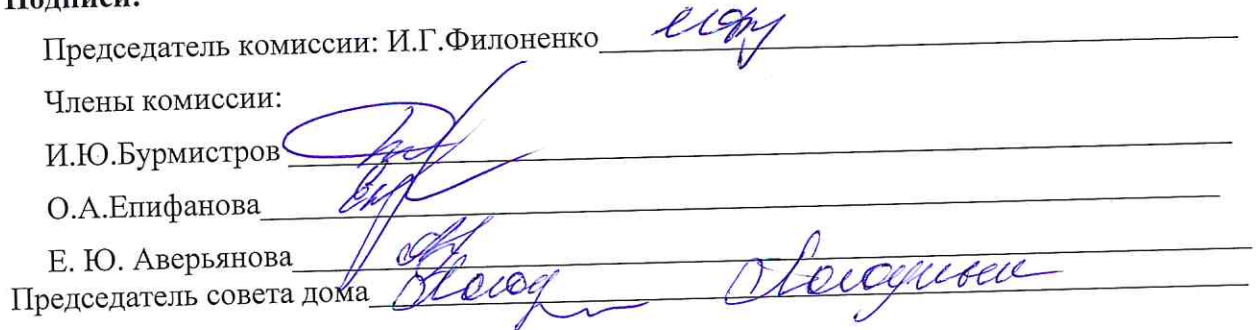 Подписи:
Председатель комиссии: И.Г.Филоненко
Члены комиссии:
И.Ю.Бурмистров
О.А.Епифанова
Е. Ю. Аверьянова
Председатель совета дома